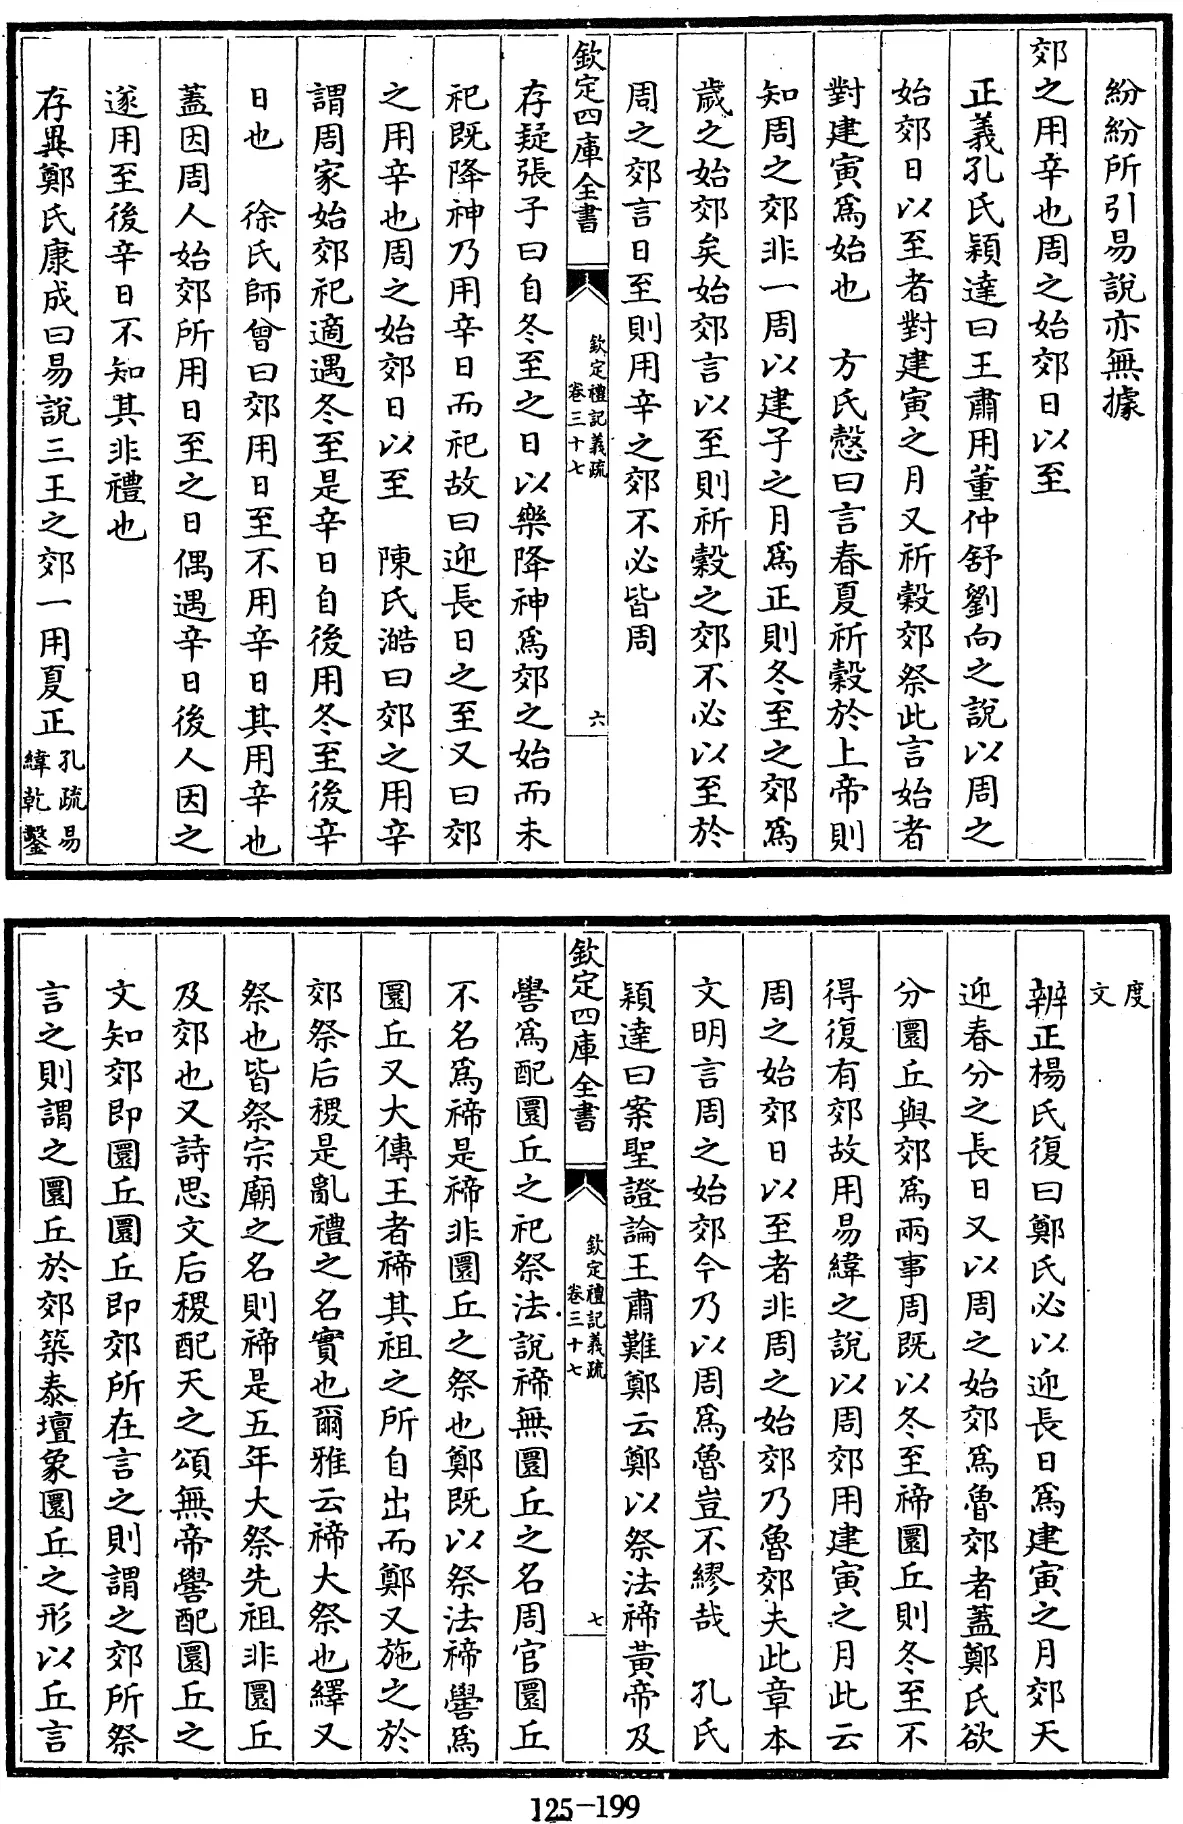 紛紛所引易說亦無據
郊之用辛也周之始郊日以至
正義孔氏穎達曰王肅用董仲舒劉向之說以周之
始郊日以至者對建寅之月又祈穀郊祭此言始者
對建寅爲始也　方氏慤曰言春夏祈穀於上帝則
知周之郊非一周以建子之月爲正則冬至之郊爲
歲之始郊矣始郊言以至則祈穀之郊不必以至於
周之郊言日至則用辛之郊不必皆周
欽定四庫全書
欽定禮記義疏
卷三十七
六
存疑張子曰自冬至之日以樂降神爲郊之始而未
祀既降神乃用辛日而祀故曰迎長日之至又曰郊
之用辛也周之始郊日以至　陳氏澔曰郊之用辛
謂周家始郊祀適遇冬至是辛日自後用冬至後辛
日也　徐氏師曾曰郊用日至不用辛日其用辛也
蓋因周人始郊所用日至之日偶遇辛日後人因之
遂用至後辛日不知其非禮也
存異鄭氏康成曰易說三王之郊一用夏正孔疏易
緯乾鑿
度
文
辨正楊氏復曰鄭氏必以迎長日爲建寅之月郊天
迎春分之長日又以周之始郊爲魯郊者蓋鄭氏欲
分圜丘與郊爲兩事周既以冬至禘圜丘則冬至不
得復有郊故用易緯之說以周郊用建寅之月此云
周之始郊日以至者非周之始郊乃魯郊夫此章本
文明言周之始郊今乃以周爲魯豈不繆哉　孔氏
穎達曰案聖證論王肅難鄭云鄭以祭法禘黃帝及
欽定四庫全書
欽定禮記義疏
卷三十七
七
嚳爲配圜丘之祀祭法說禘無圜丘之名周官圜丘
不名爲禘是禘非圜丘之祭也鄭既以祭法禘嚳爲
圜丘又大傳王者禘其祖之所自出而鄭又施之於
郊祭后稷是亂禮之名實也爾雅云禘大祭也繹又
祭也皆祭宗廟之名則禘是五年大祭先祖非圜丘
及郊也又詩思文后稷配天之頌無帝嚳配圜丘之
文知郊即圜丘圜丘即郊所在言之則謂之郊所祭
言之則謂之圜丘於郊築泰壇象圜丘之形以丘言
125-199